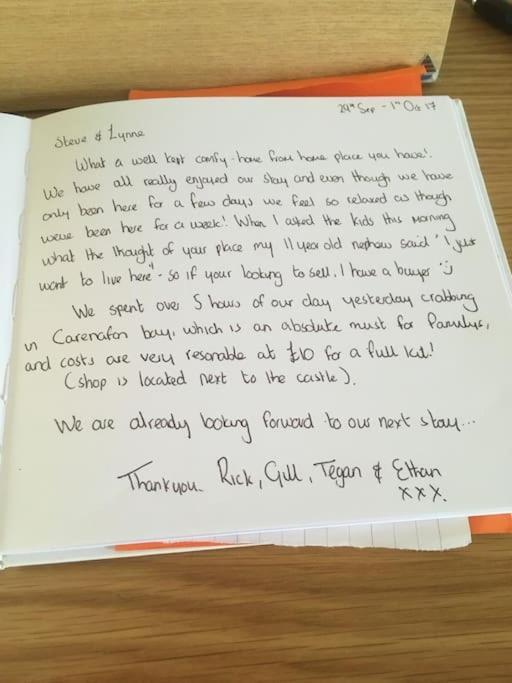 29th Sep - 1st Oct 17
Steve & Lynne
What a well kept comfy-home from home place you have!
We have all really enjoyed our stay and even though we have
only been here for a few days we feel so relaxed as though
weve been here for a week! When I asked the kids this morning
what the thought of your place my 11 year old nephew said "I just
want to live here" - so if your looking to sell, I have a buyer :)
We spent over 5 hours of our day yesterday crabbing
in Carenafon bay, which is an absolute must for familys,
and costs are very resonable at £10 for a full kit!
(shop is located next to the castle).
We are already looking forward to our next stay...
Thankyou. Rick, Gill, Tegan & Ethan
xxx.